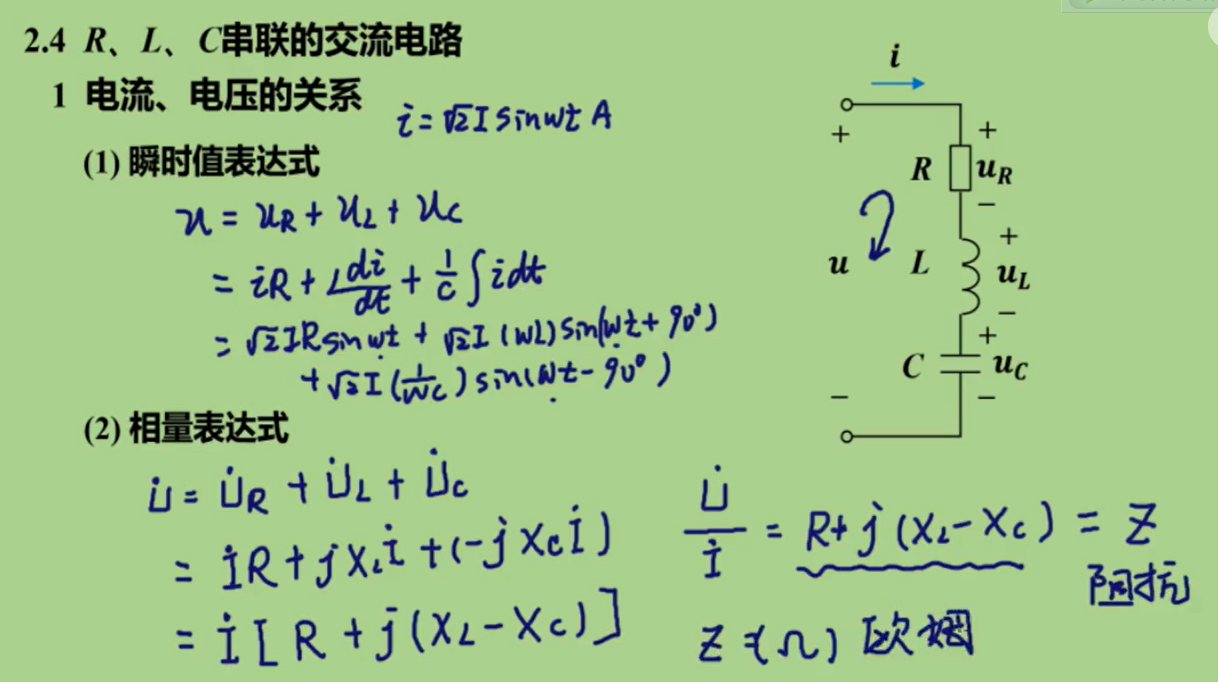 2.4 R、L、C串联的交流电路
1 电流、电压的关系
i = √2 I sin wt A
(1) 瞬时值表达式
u = uR + uL + uC
= iR + L di/dt + 1/C ∫ i dt
= √2 IR sin wt + √2 I (wL) sin(wt + 90°)
+ √2 I (1/wC) sin(wt - 90°)
(2) 相量表达式
U̇ = U̇R + U̇L + U̇C
= İR + jXLİ + (-jXCİ)
= İ[R + j(XL - XC)]
U̇/İ = R + j(XL - XC) = Z
阻抗
Z (Ω) 欧姆
i
+
R
+
uR
−
u
L
+
uL
−
C
+
uC
−
−